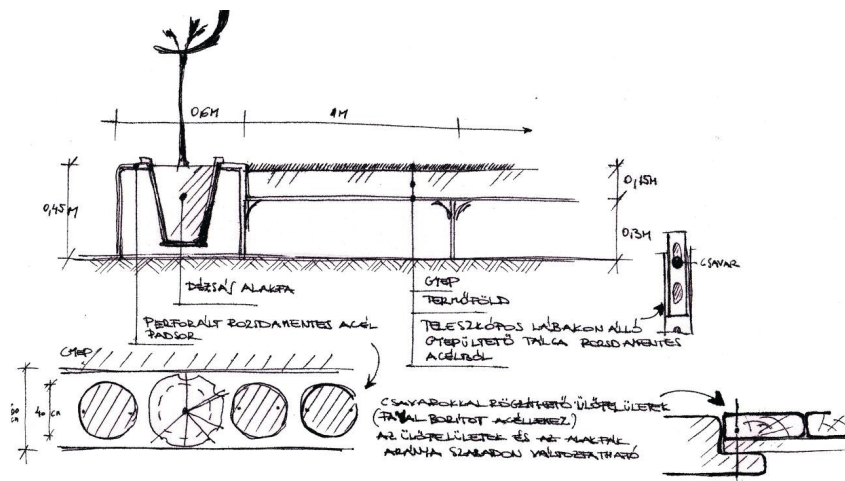 0,6M
1M
0,45M
0,15M
0,3M
CSAVAR
DÉZSÁS ALAKFA
GYEP
TERMŐFÖLD
PERFORÁLT ROZSDAMENTES ACÉL
PADSOR
TELESZKÓPOS LÁBAKON ÁLLÓ
GYEPÜLTETŐ TÁLCA ROZSDAMENTES
ACÉLBÓL
GYEP
40 cm
CSAVAROKKAL RÖGZÍTHETŐ ÜLŐFELÜLETEK
(FÁVAL BORÍTOT ACÉLLEMEZ)
AZ ÜLŐFELÜLETEK ÉS AZ ALAKFÁK
ARÁNYA SZABADON VÁLTOZTATHATÓ